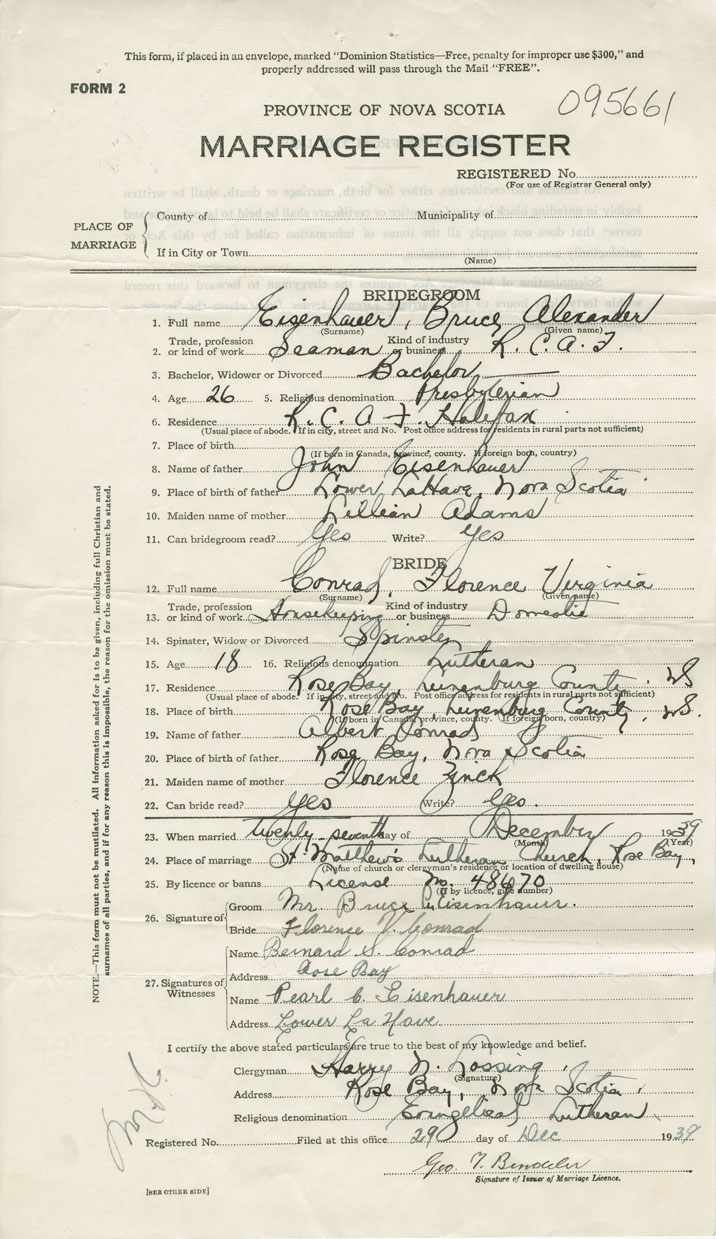 This form, if placed in an envelope, marked "Dominion Statistics—Free, penalty for improper use $300," and
properly addressed will pass through the Mail "FREE".
FORM 2
PROVINCE OF NOVA SCOTIA 095661
MARRIAGE REGISTER
REGISTERED No.
(For use of Registrar General only)
PLACE OF MARRIAGE
County of Municipality of
If in City or Town
(Name)
BRIDEGROOM
1. Full name Eisenhauer, Bruce Alexander
(Surname) (Given name)
2. Trade, profession or kind of work Seaman Kind of industry or business R.C.A.F.
3. Bachelor, Widower or Divorced Bachelor
4. Age 26 5. Religious denomination Presbyterian
6. Residence R.C.A.F. Halifax
(Usual place of abode. If in city, street and No. Post office address for residents in rural parts not sufficient)
7. Place of birth
(If born in Canada, province, county. If foreign born, country)
8. Name of father John Eisenhauer
9. Place of birth of father Lower LaHave, Nova Scotia
10. Maiden name of mother Lillian Adams
11. Can bridegroom read? Yes Write? Yes
BRIDE
12. Full name Conrad, Florence Virginia
(Surname) (Given name)
13. Trade, profession or kind of work Housekeeping Kind of industry or business Domestic
14. Spinster, Widow or Divorced Spinster
15. Age 18 16. Religious denomination Lutheran
17. Residence Rose Bay, Lunenburg County. NS
(Usual place of abode. If in city, street and No. Post office address for residents in rural parts not sufficient)
18. Place of birth Rose Bay, Lunenburg County. NS.
(If born in Canada, province, county. If foreign born, country)
19. Name of father Albert Conrad
20. Place of birth of father Rose Bay, Nova Scotia
21. Maiden name of mother Florence Zinck
22. Can bride read? Yes Write? Yes.
23. When married twenty-seventh day of December 1939
(Month) (Year)
24. Place of marriage St. Matthew's Lutheran Church, Rose Bay,
(Name of church or clergyman's residence or location of dwelling house)
25. By licence or banns License No. 48670
(If by licence, give number)
26. Signature of
Groom Mr. Bruce Eisenhauer.
Bride Florence V. Conrad
27. Signatures of Witnesses
Name Bernard S. Conrad
Address Rose Bay
Name Pearl C. Eisenhauer
Address Lower La Have
I certify the above stated particulars are true to the best of my knowledge and belief.
Clergyman Harry N. Lossing.
(Signature)
Address Rose Bay, Nova Scotia.
Religious denomination Evangelical Lutheran
Registered No. Filed at this office 29 day of Dec 1939
Geo. T.
Signature of Issuer of Marriage Licence.
[SEE OTHER SIDE]
NOTE.—This form must not be mutilated. All information asked for is to be given, including full Christian and
surnames of all parties, and if for any reason this is impossible, the reason for the omission must be stated.